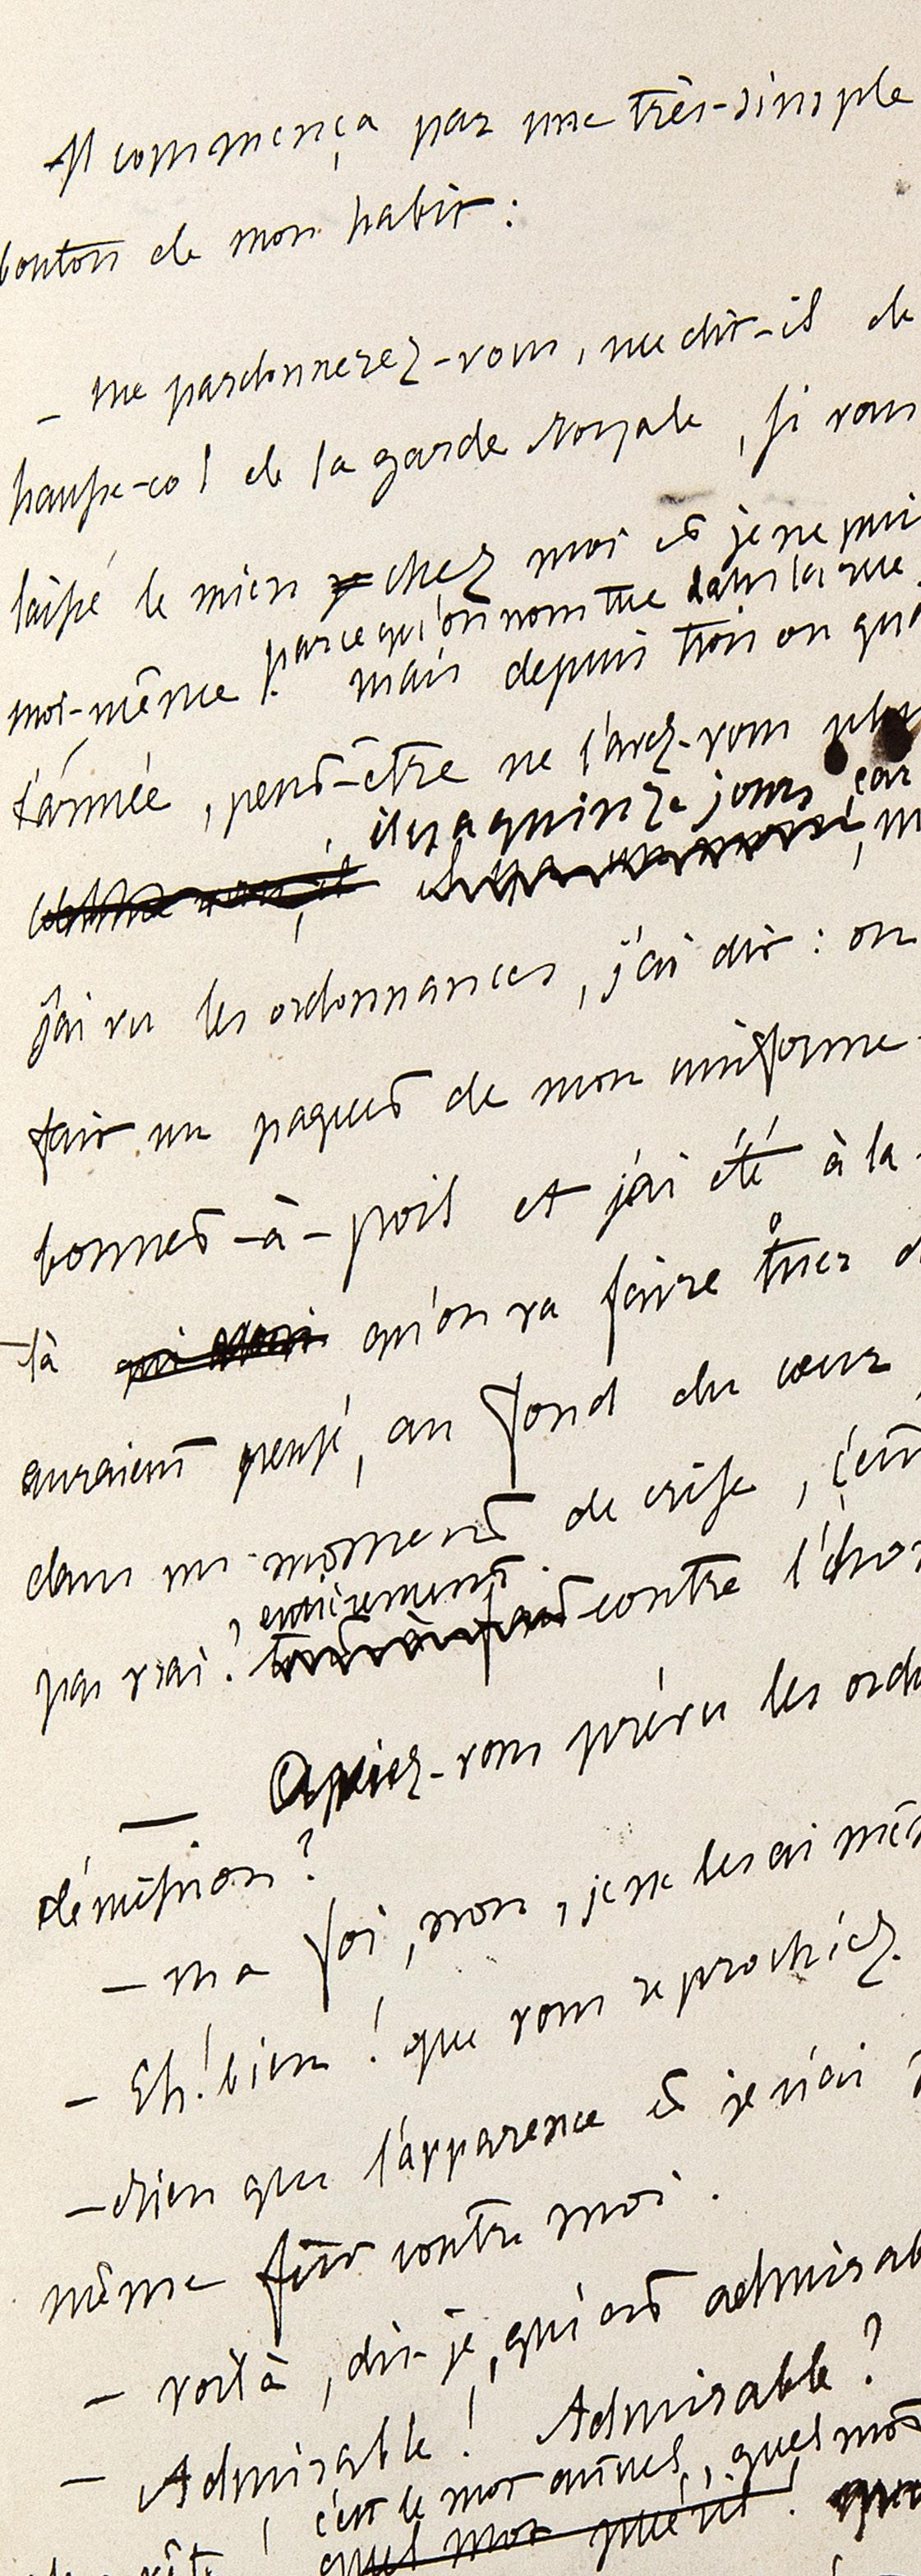 Il commença par une très-simple
bouton de mon habit :
— me pardonnerez-vous, me dit-il de
hausse-col de la garde Royale, si vous
laissé le mien chez moi et je ne puis
parcequ'on nous tue dans la rue.
moi-même ? mais depuis trois ou qua
l'armée, peut-être ne l'avez-vous plus
il y a quinze jours, car
j'ai vu les ordonnances, j'ai dit : on
fait un paquet de mon uniforme
bonnet-à-poil et j'ai été à la
là qu'on va faire tuer
auraient pensé, au fond du cœur,
dans un moment de crise, c'eut
entièrement
pas vrai ? contre l'hon
— Aviez-vous prévu les ordo
démission ?
— ma foi, non, je ne les ai mê
— Eh ! bien ! que vous reprochiez.
— Rien que l'apparence et je n'ai
même fût contre moi.
— voilà, dis-je, qui est admirab
— Admirable ! Admirable ?
c'est le mot actuel, quel mot
quel mot puéril.